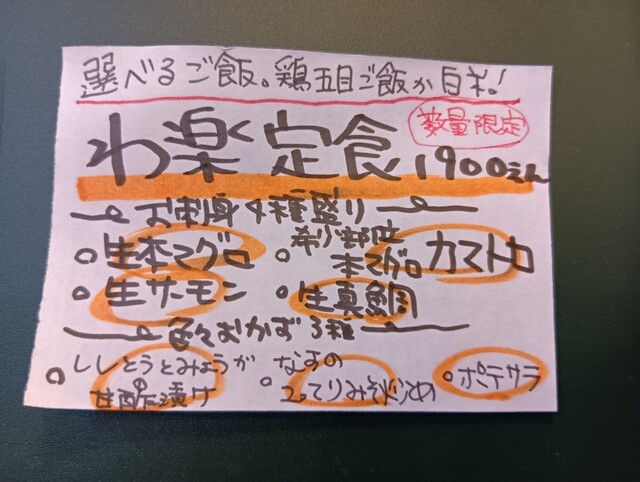 選べるご飯。鶏五目ご飯か白米!
数量限定
わ楽定食 1900えん
お刺身4種盛り
○生本マグロ
○希少部位本マグロカマトロ
○生サーモン
○生真鯛
色々おかず3種
○ししとうとみょうが甘酢漬け
○なすのこってりみそ炒め
○ポテサラ